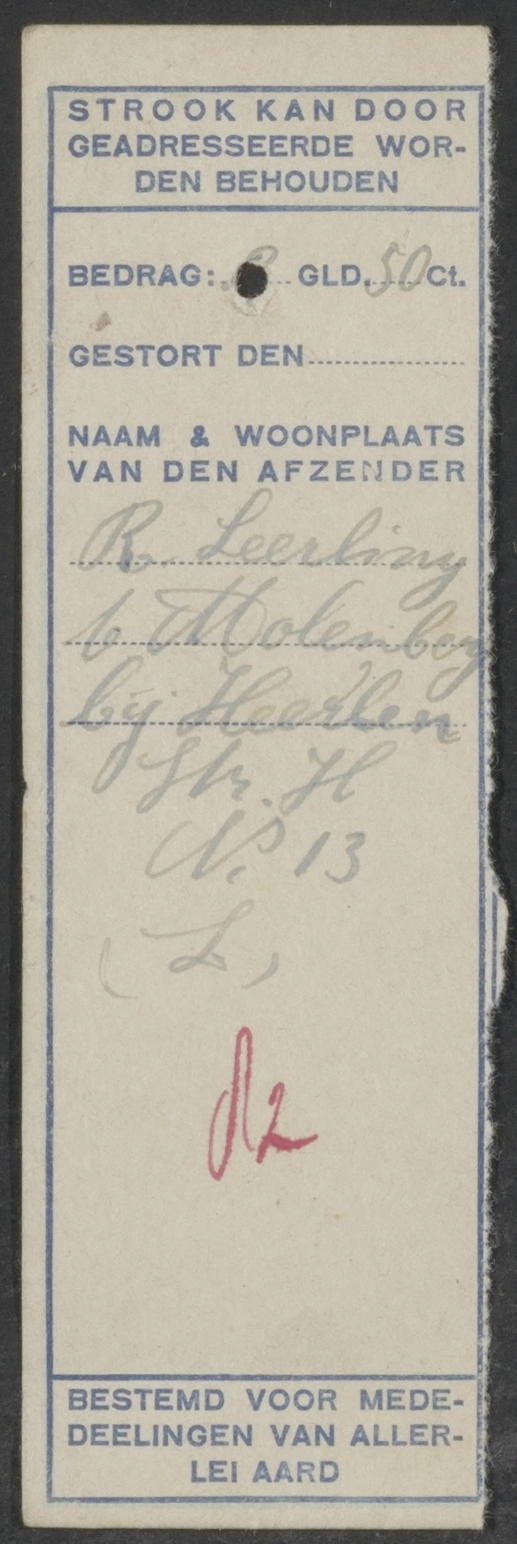 STROOK KAN DOOR
GEADRESSEERDE WOR-
DEN BEHOUDEN
BEDRAG: GLD. 50 Ct.
GESTORT DEN
NAAM & WOONPLAATS
VAN DEN AFZENDER
R. Leerling
Molenberg
bij Heerlen
Str. H
N. 13
(L)
BESTEMD VOOR MEDE-
DEELINGEN VAN ALLER-
LEI AARD